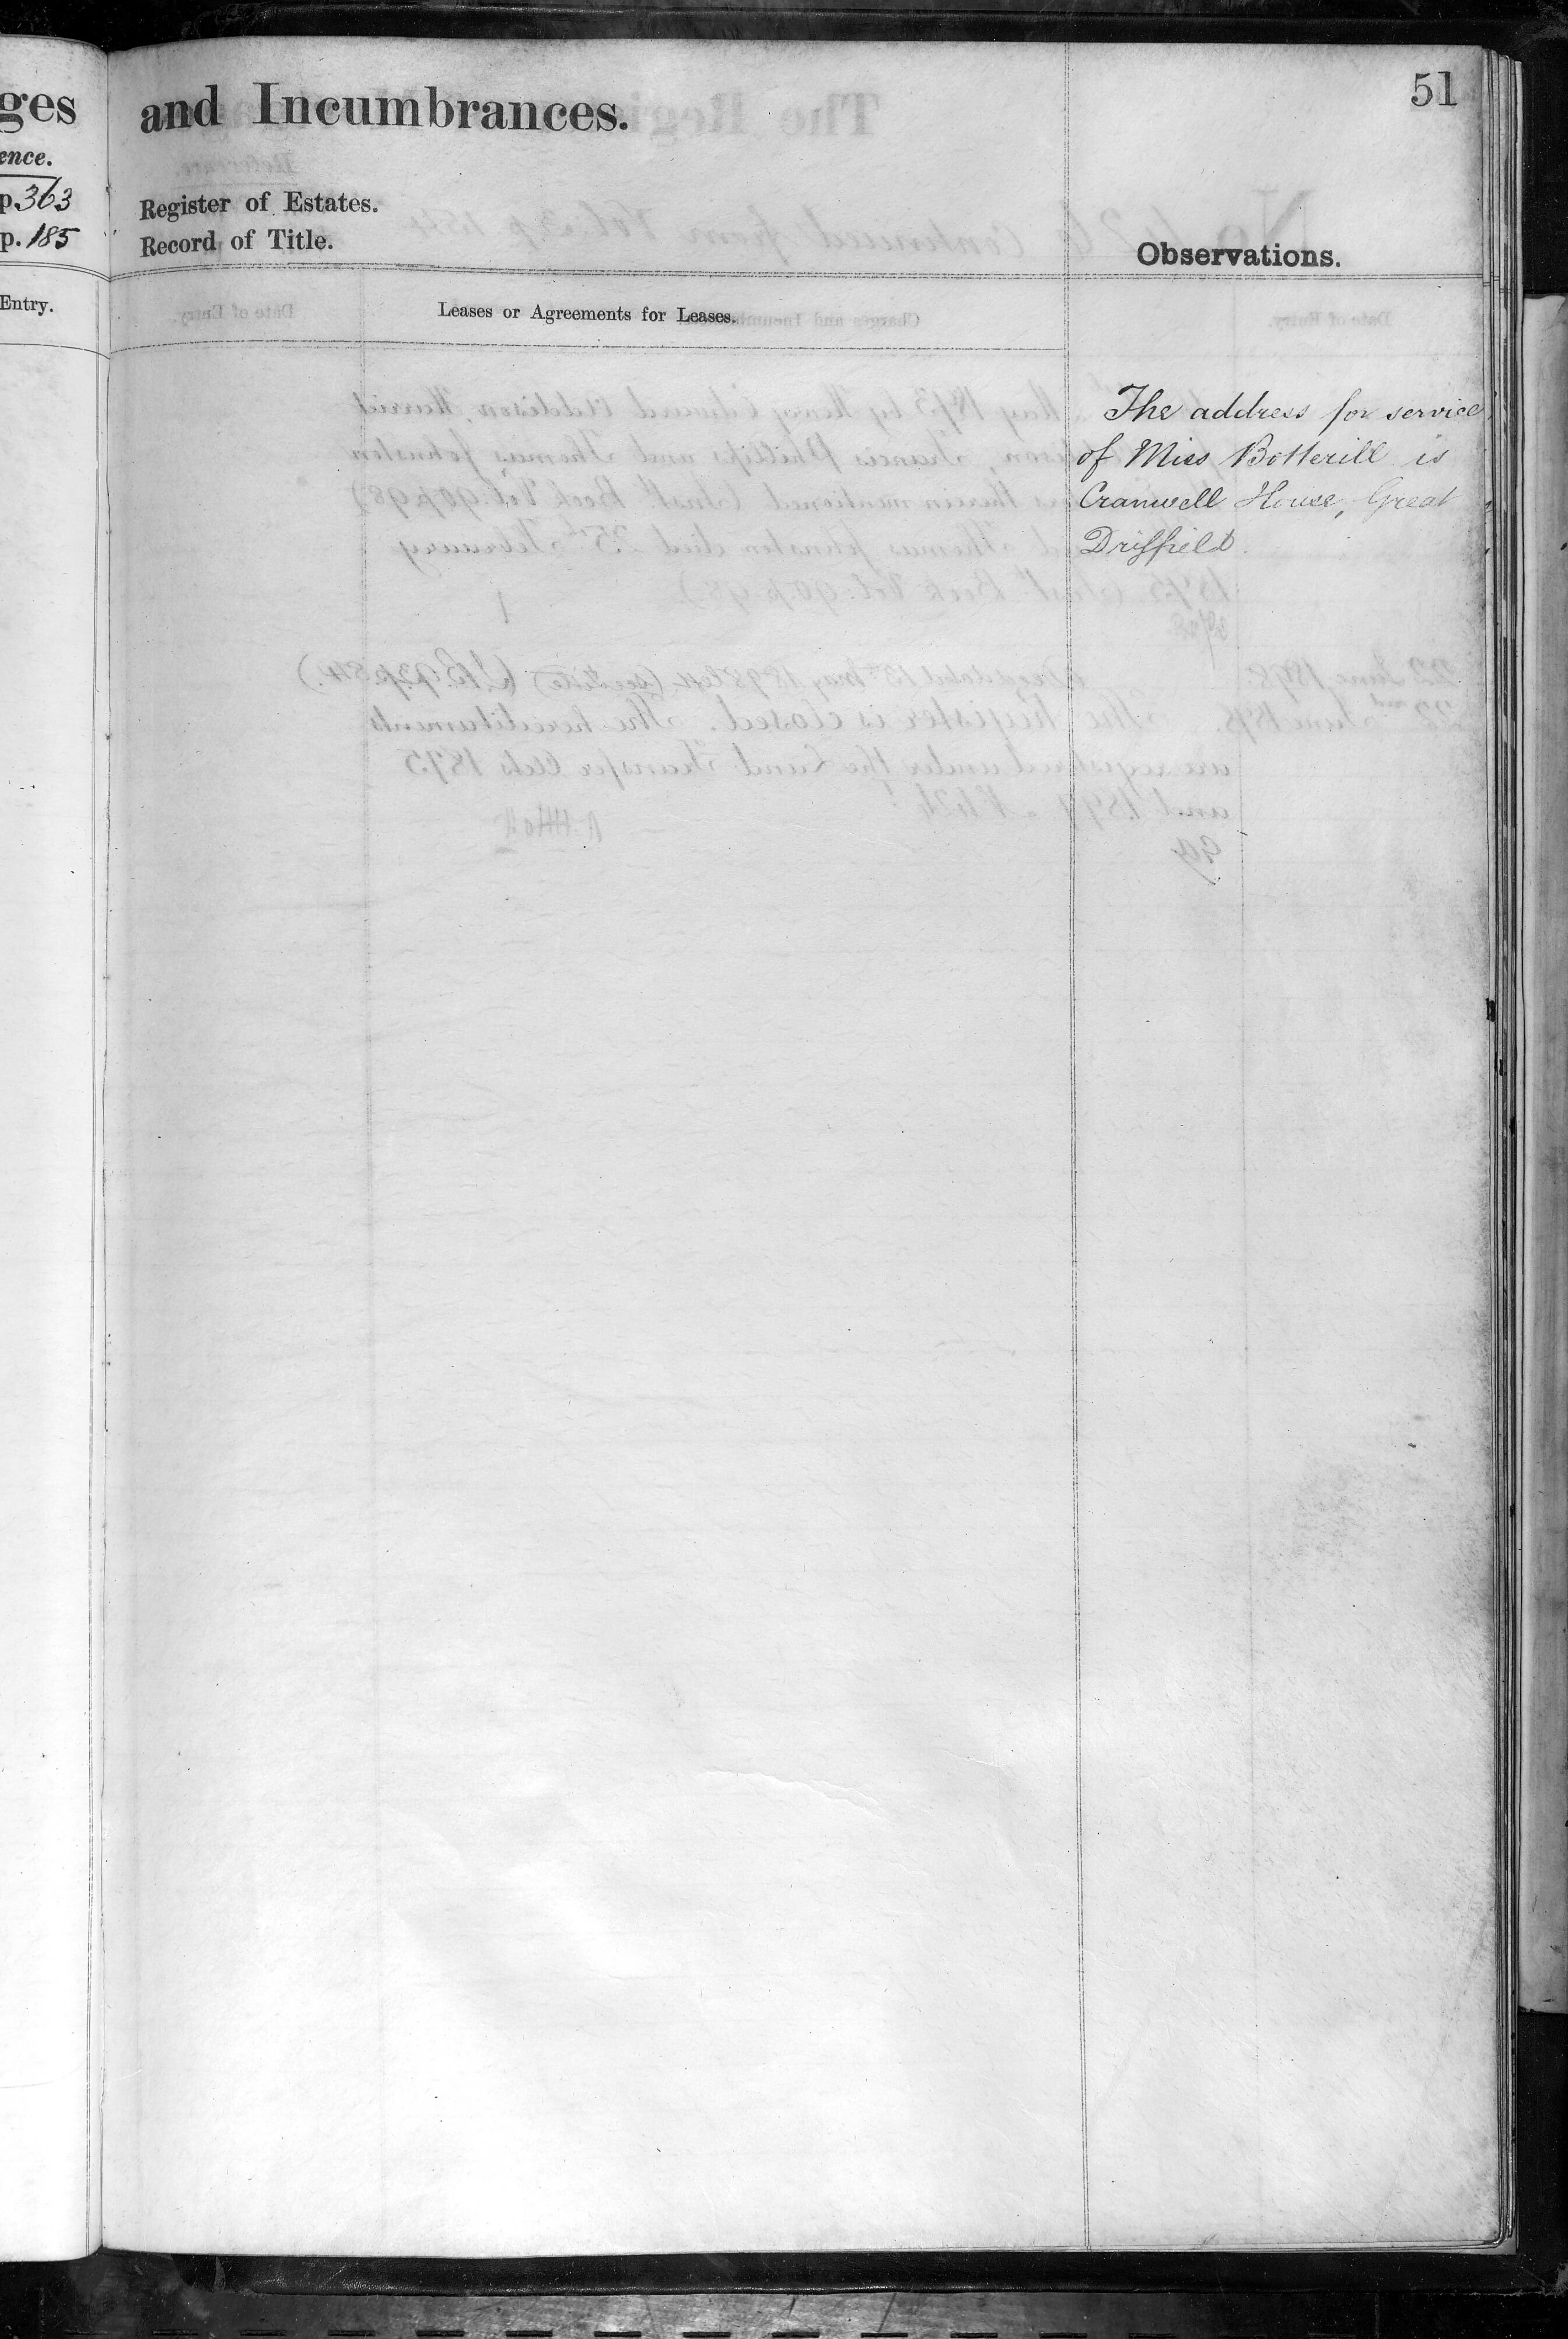 ges
ence.
p. 363
p. 185
Entry.
and Incumbrances.
51
Register of Estates.
Record of Title.
Observations.
Leases or Agreements for Leases.
The address for service
of Miss Botterill is
Cranwell House, Great
Driffield.